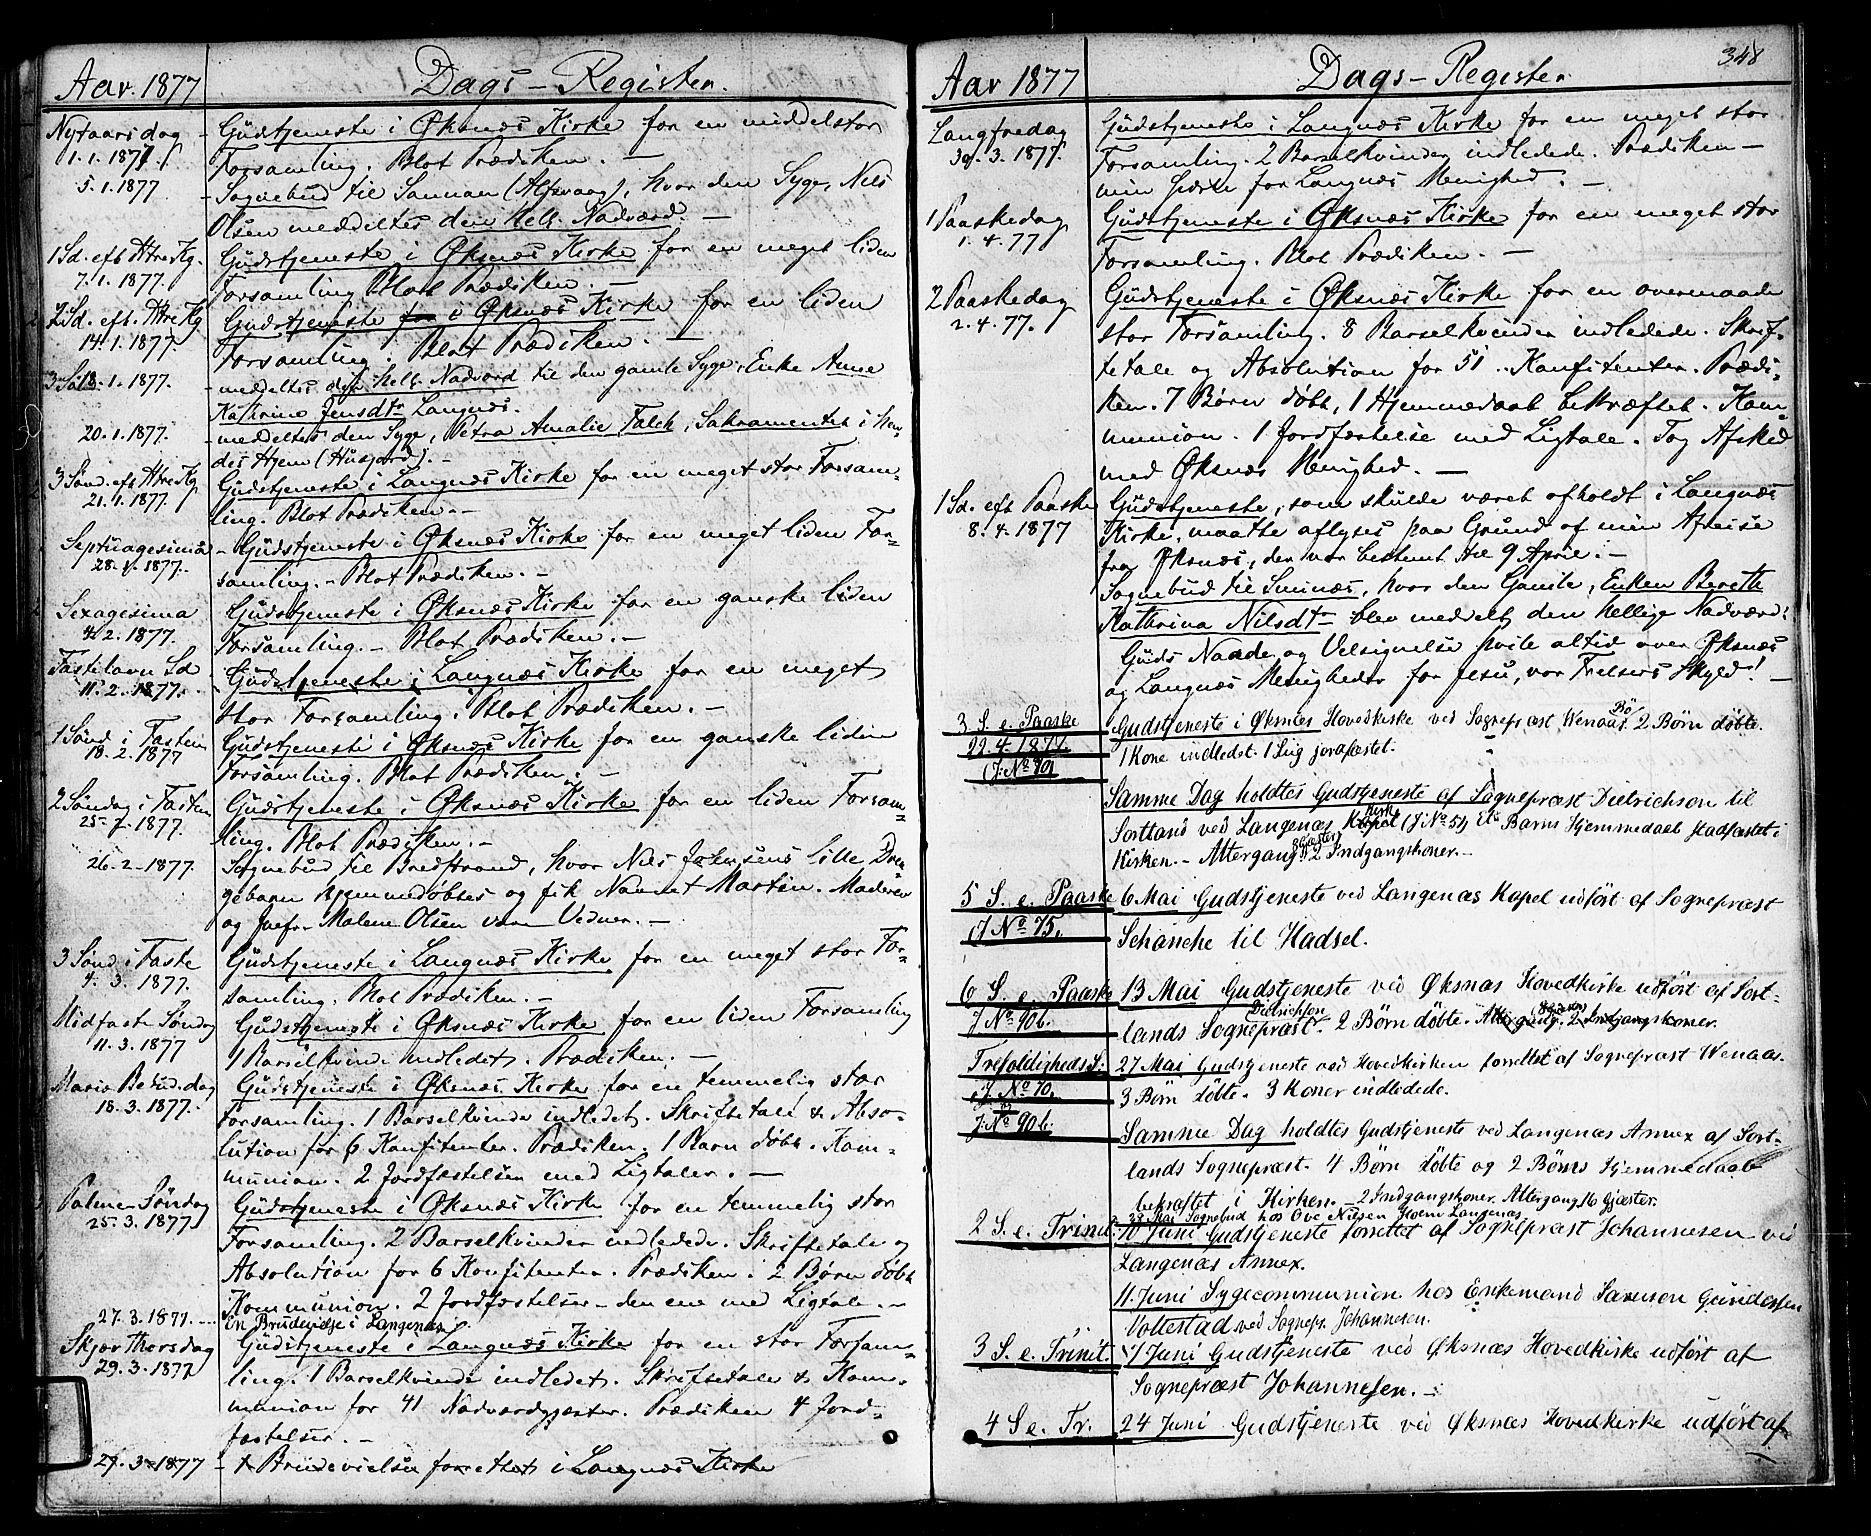 Aar 1877 Dags-Register.
Nytaarsdag - Gudstjeneste i Øksnæs Kirke for en middelstor
1.1.1877 Forsamling. Blot Prædiken. —
5.1.1877 - Sognebud til (Alfsvaag), hvor den Syge, Nils
Olsen meddeltes den hell. Nadværd. —
1 Sd. eft. Htre Kg. Gudstjeneste i Øksnæs Kirke for en meget liden
7.1.1877. Forsamling. Blot Prædiken. —
2 Sd. eft. Htre Kg Gudstjeneste for i Øksnæs Kirke for en liden
14.1.1877. Forsamling. Blot Prædiken. —
18.1.1877. - meddeltes den hell. Nadvord til den gamle Syge, Enke Anne
Kathrine Jensdtr Langnæs.
20.1.1877. - meddeltes den Syge, Petra Amalie Falch, Sakramentet i hen-
des Hjem (Husjord). —
3 Sønd. eft Htre Kg Gudstjeneste i Langnæs Kirke for en meget stor Forsam-
21.1.1877. ling. Blot Prædiken. —
Septuagesima - Gudstjeneste i Øksnæs Kirke for en meget liden For-
28.1.1877. samling. - Blot Prædiken. —
Sexagesima Gudstjeneste i Øksnæs Kirke for en ganske liden
4.2.1877. Forsamling. - Blot Prædiken. —
Fastelavn Sd - Gudstjeneste i Langnæs Kirke for en meget
11.2.1877. stor Forsamling. Blot Prædiken. —
1 Sønd i Fasten Gudstjeneste i Øksnæs Kirke for en ganske liden
18.2.1877 Forsamling. Blot Prædiken. —
2 Søndag i Fasten Gudstjeneste i Øksnæs Kirke for en liden Forsam-
25.2.1877. ling. Blot Prædiken. —
26.2.1877. Sognebud til Bredstrand, hvor Nils lille Dren-
gebarn hjemmedøbtes og fik Navnet Martin. Moderen
og Jomfr. Malene Olsen vare Vidner. —
3 Sønd i Faste Gudstjeneste i Langnæs Kirke for en meget stor For-
4.3.1877. samling. Blot Prædiken. —
Midfaste Søndag Gudstjeneste i Øksnæs Kirke for en liden Forsamling
11.3.1877 1 Barselkvinde indledet. Prædiken. —
Maria Bebud. dag Gudstjeneste i Øksnæs Kirke for en temmelig stor
18.3.1877. Forsamling. 1 Barselkvinde indledet. Skriftetale & Abso-
lution for 6 Konfitenter. Prædiken. 1 Barn døbt. Kom-
munion. 2 Jordfæstelser med Ligtaler. —
Palme-Søndag Gudstjeneste i Øksnæs Kirke for en temmelig stor
25.3.1877 Forsamling. 2 Barselkvinder indledede. Skriftetale og
Absolution for 6 Konfitenter. Prædiken. 2 Børn døbt
Kommunion. 2 Jordfæstelser - den ene med Ligtale. —
27.3.1877. En Brudevielse i Langenæs
Skjær Thorsdag Gudstjeneste i Langnæs Kirke for en stor Forsam-
29.3.1877 ling. 1 Barselkvinde indledet. Skriftetale & Kom-
munion for 41 Nadverdgjæster. Prædiken 4 Jord-
fæstelser. —
27.3.1877 - 1 Brudevielse forrettet i Langnæs Kirke
348
Aar 1877 Dags-Register
Langfredag Gudstjeneste i Langnæs Kirke for en meget stor
30.3.1877. Forsamling. 2 Barselkvinder indledede. Prædiken -
min sidste for Langnæs Menighed. —
1 Paaskedag Gudstjeneste i Øksnæs Kirke for en meget stor
1.4.77 Forsamling. Blot Prædiken. —
2 Paaskedag Gudstjeneste i Øksnæs Kirke for en overmaade
2.4.77. stor Forsamling. 8 Barselkvinder indledede. Skrif-
tetale og Absolution for 51 Konfitenter. Prædi-
ken. 7 Børn døbt, 1 Hjemmedaab bekræftet. Kom-
munion. 1 Jordfæstelse med Ligtale. Tog Afsked
med Øksnæs Menighed. —
1 Sd. eft Paaske Gudstjeneste, som skulde været afholdt i Langnæs
8.4.1877 Kirke, maatte aflyses paa Grund af min Afreise
fra Øksnæs, der var bestemt til 9 April. —
Sognebud til Smines, hvor den Gamle, Enken Berette
Kathrina Nilsdtr blev meddelt den hellige Nadværd.
Guds Naade og Velsignelse hvile altid over Øksnæs
og Langnæs Menigheder for Jesu, vor Frelsers Skyld! —
3 S. e. Paaske Gudstjeneste i Øksnæs Hovedkirke ved Sognepræst Wenaas Bø. 2 Børn døbte.
22.4.1877. 1 Kone indledet. 1 Liig jordfæstet.
(J: No 70)
Samme Dag holdtes Gudstjeneste af Sognepræst Dietrichson til
Sortland ved Langenæs Kapel Kirk (J No 51) Et Barns Hjemmedaab stadfæstet i
Kirken. - Altergang Gjæster 2 Indgangskoner. —
5 S. e. Paaske 6 Mai Gudstjeneste ved Langenæs Kapel udført af Sognepræst
(J No 75. Schanche til Hadsel.
6 S. e. Paaske 13 Mai Gudstjeneste ved Øksnæs Hovedkirke udført af Sort-
J No 90 b. lands Sognepræst Dietrichson. 2 Børn døbte. Altergang. 2 Indgangskoner.
Trefoldigheds S: 27 Mai Gudstjeneste ved Hovedkirken forrettet af Sognepræst Wenaas.
J. No 70. 3 Børn døbte. 3 Koner indledede.
J: No 90 b. Samme Dag holdtes Gudstjeneste ved Langenæs Annex af Sort-
lands Sognepræst. 4 Børn døbte og 2 Børns Hjemmedaab
bekræftet i Kirken. - 2 Indgangskoner. Altergang 16 Gjæster.
28 Mai Sognebud hos Ove Nilsen Langenæs
2 S. e. Trinit. 10 Juni Gudstjeneste forrettet af Sognepræst Johannesen ved
Langenæs Annex.
11. Juni Sygecommunion hos Enkemand
Vottestad ved Sognepr. Johannesen.
3 S. e. Trinit. 17 Juni Gudstjeneste ved Øksnæs Hovedkirke udført af
Sognepræst Johannesen. —
4 S e. Tr. 24 Juni Gudstjeneste ved Øksnæs Hovedkirke udført af